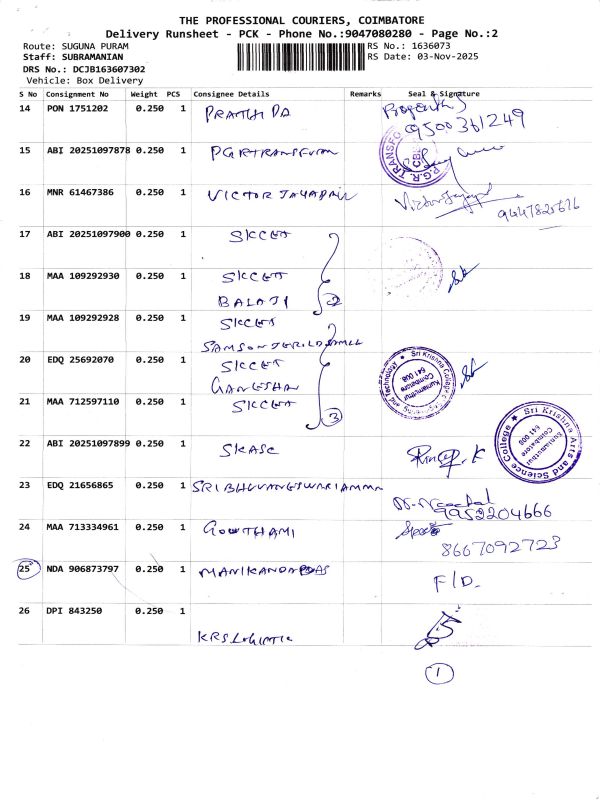 THE PROFESSIONAL COURIERS, COIMBATORE
Delivery Runsheet - PCK - Phone No.:9047080280 - Page No.:2
Route: SUGUNA PURAM
RS No.: 1636073
Staff: SUBRAMANIAN
RS Date: 03-Nov-2025
DRS No.: DCJB163607302
Vehicle: Box Delivery
S No Consignment No Weight PCS Consignee Details Remarks Seal & Signature
14 PON 1751202 0.250 1
9500361249
15 ABI 20251097878 0.250 1 PGRTRANSEVAN
P.G.R. TRANSFO
16 MNR 61467386 0.250 1 VICTOR JAYAPAUL
9447825676
17 ABI 20251097900 0.250 1 SKCET
18 MAA 109292930 0.250 1 SKCET
BALAJI 2
19 MAA 109292928 0.250 1 SKCET
20 EDQ 25692070 0.250 1 SKCET
GANESHAN
Sri Krishna College
Technology
Kuniamuthur
Coimbatore
641 008
21 MAA 712597110 0.250 1 SKCET
3
22 ABI 20251097899 0.250 1 SKASC
Sri Krishna Arts and Science College
Kuniamuthur
Coimbatore
641 008
23 EDQ 21656865 0.250 1 SRIBHUVANESWARIAMMAN
9952204666
24 MAA 713334961 0.250 1 GOWTHAMI
8667092723
25 NDA 906873797 0.250 1 F/D.
26 DPI 843250 0.250 1
KRS Logistic
1